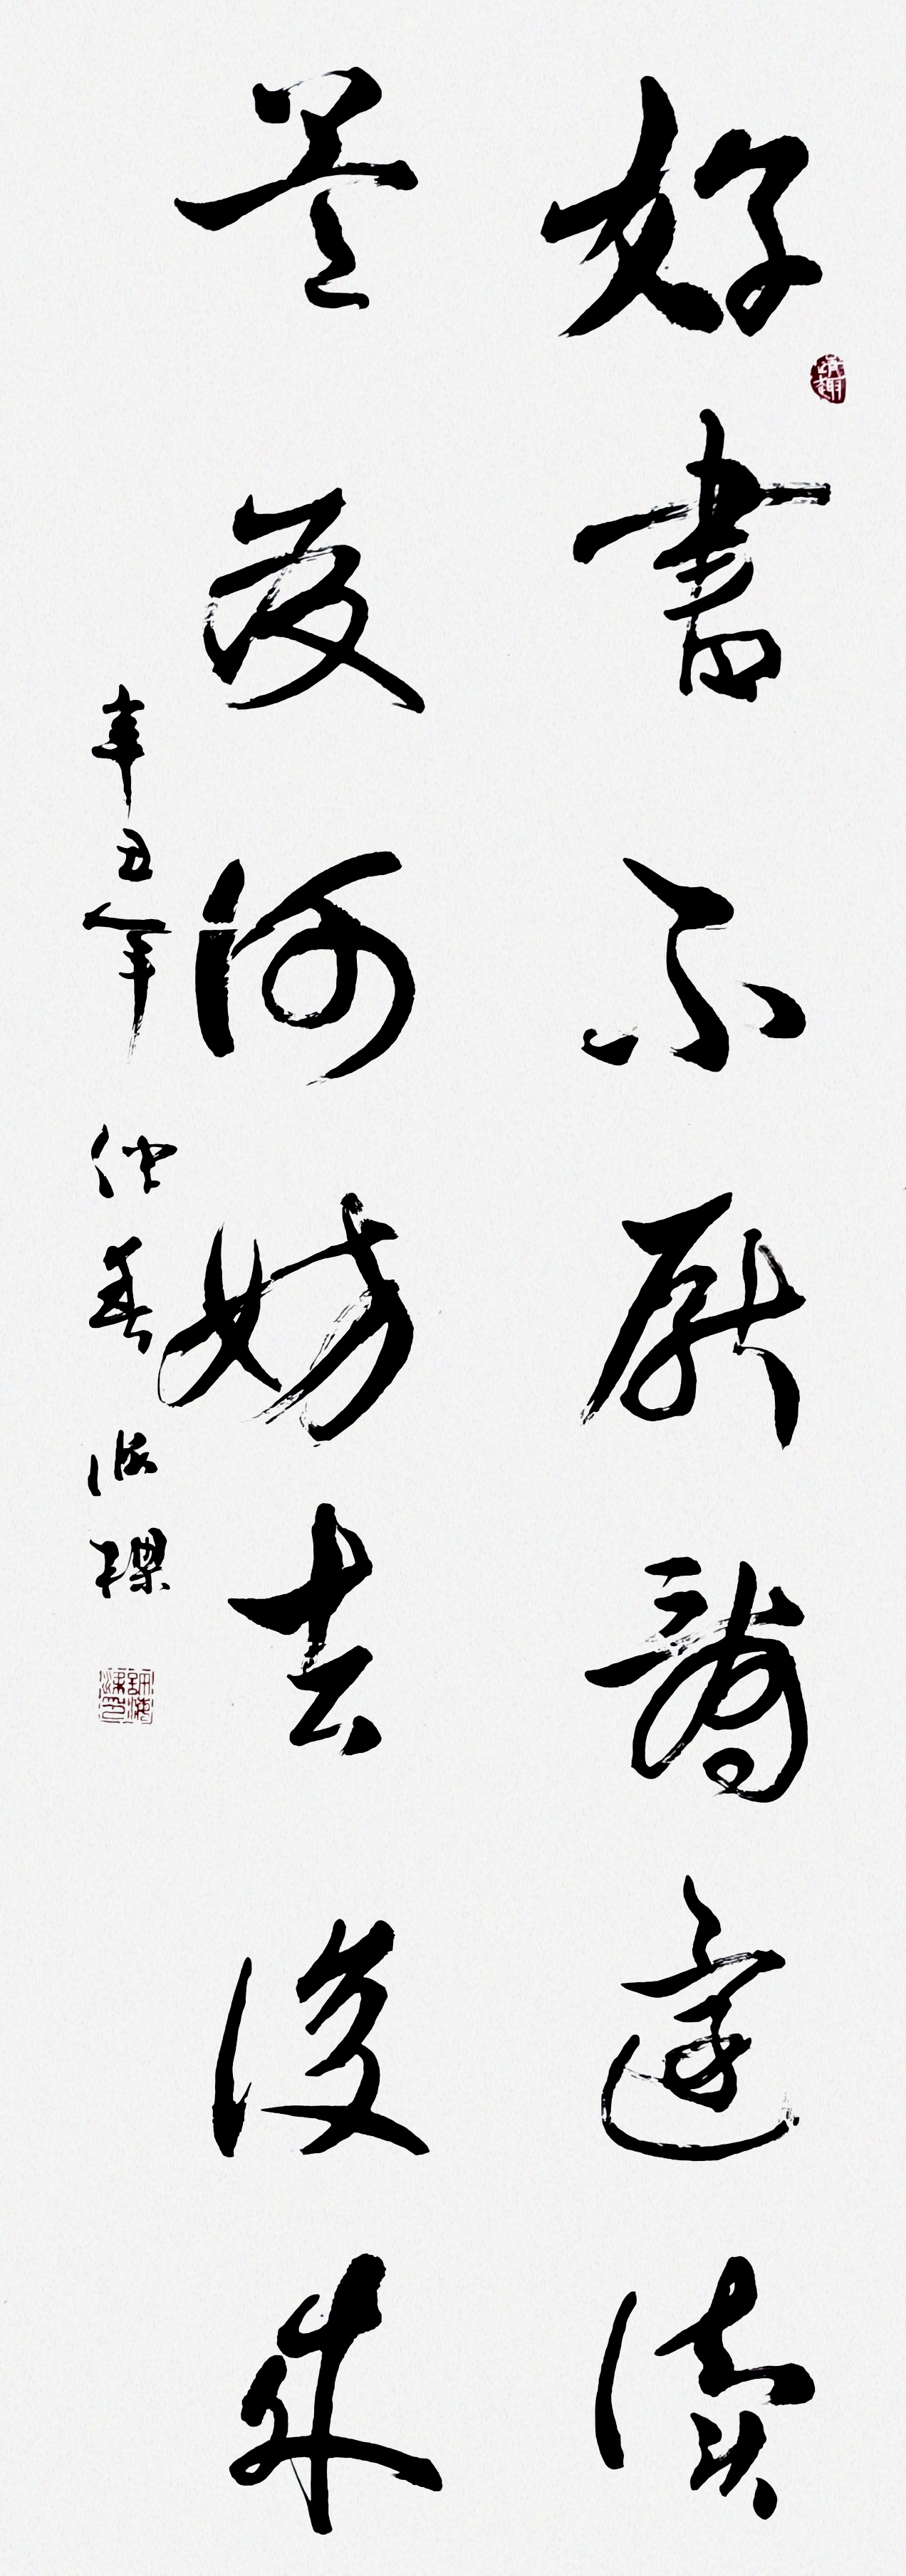 好書不厭還讀
益友何妨去復來
辛丑年 仲春 海